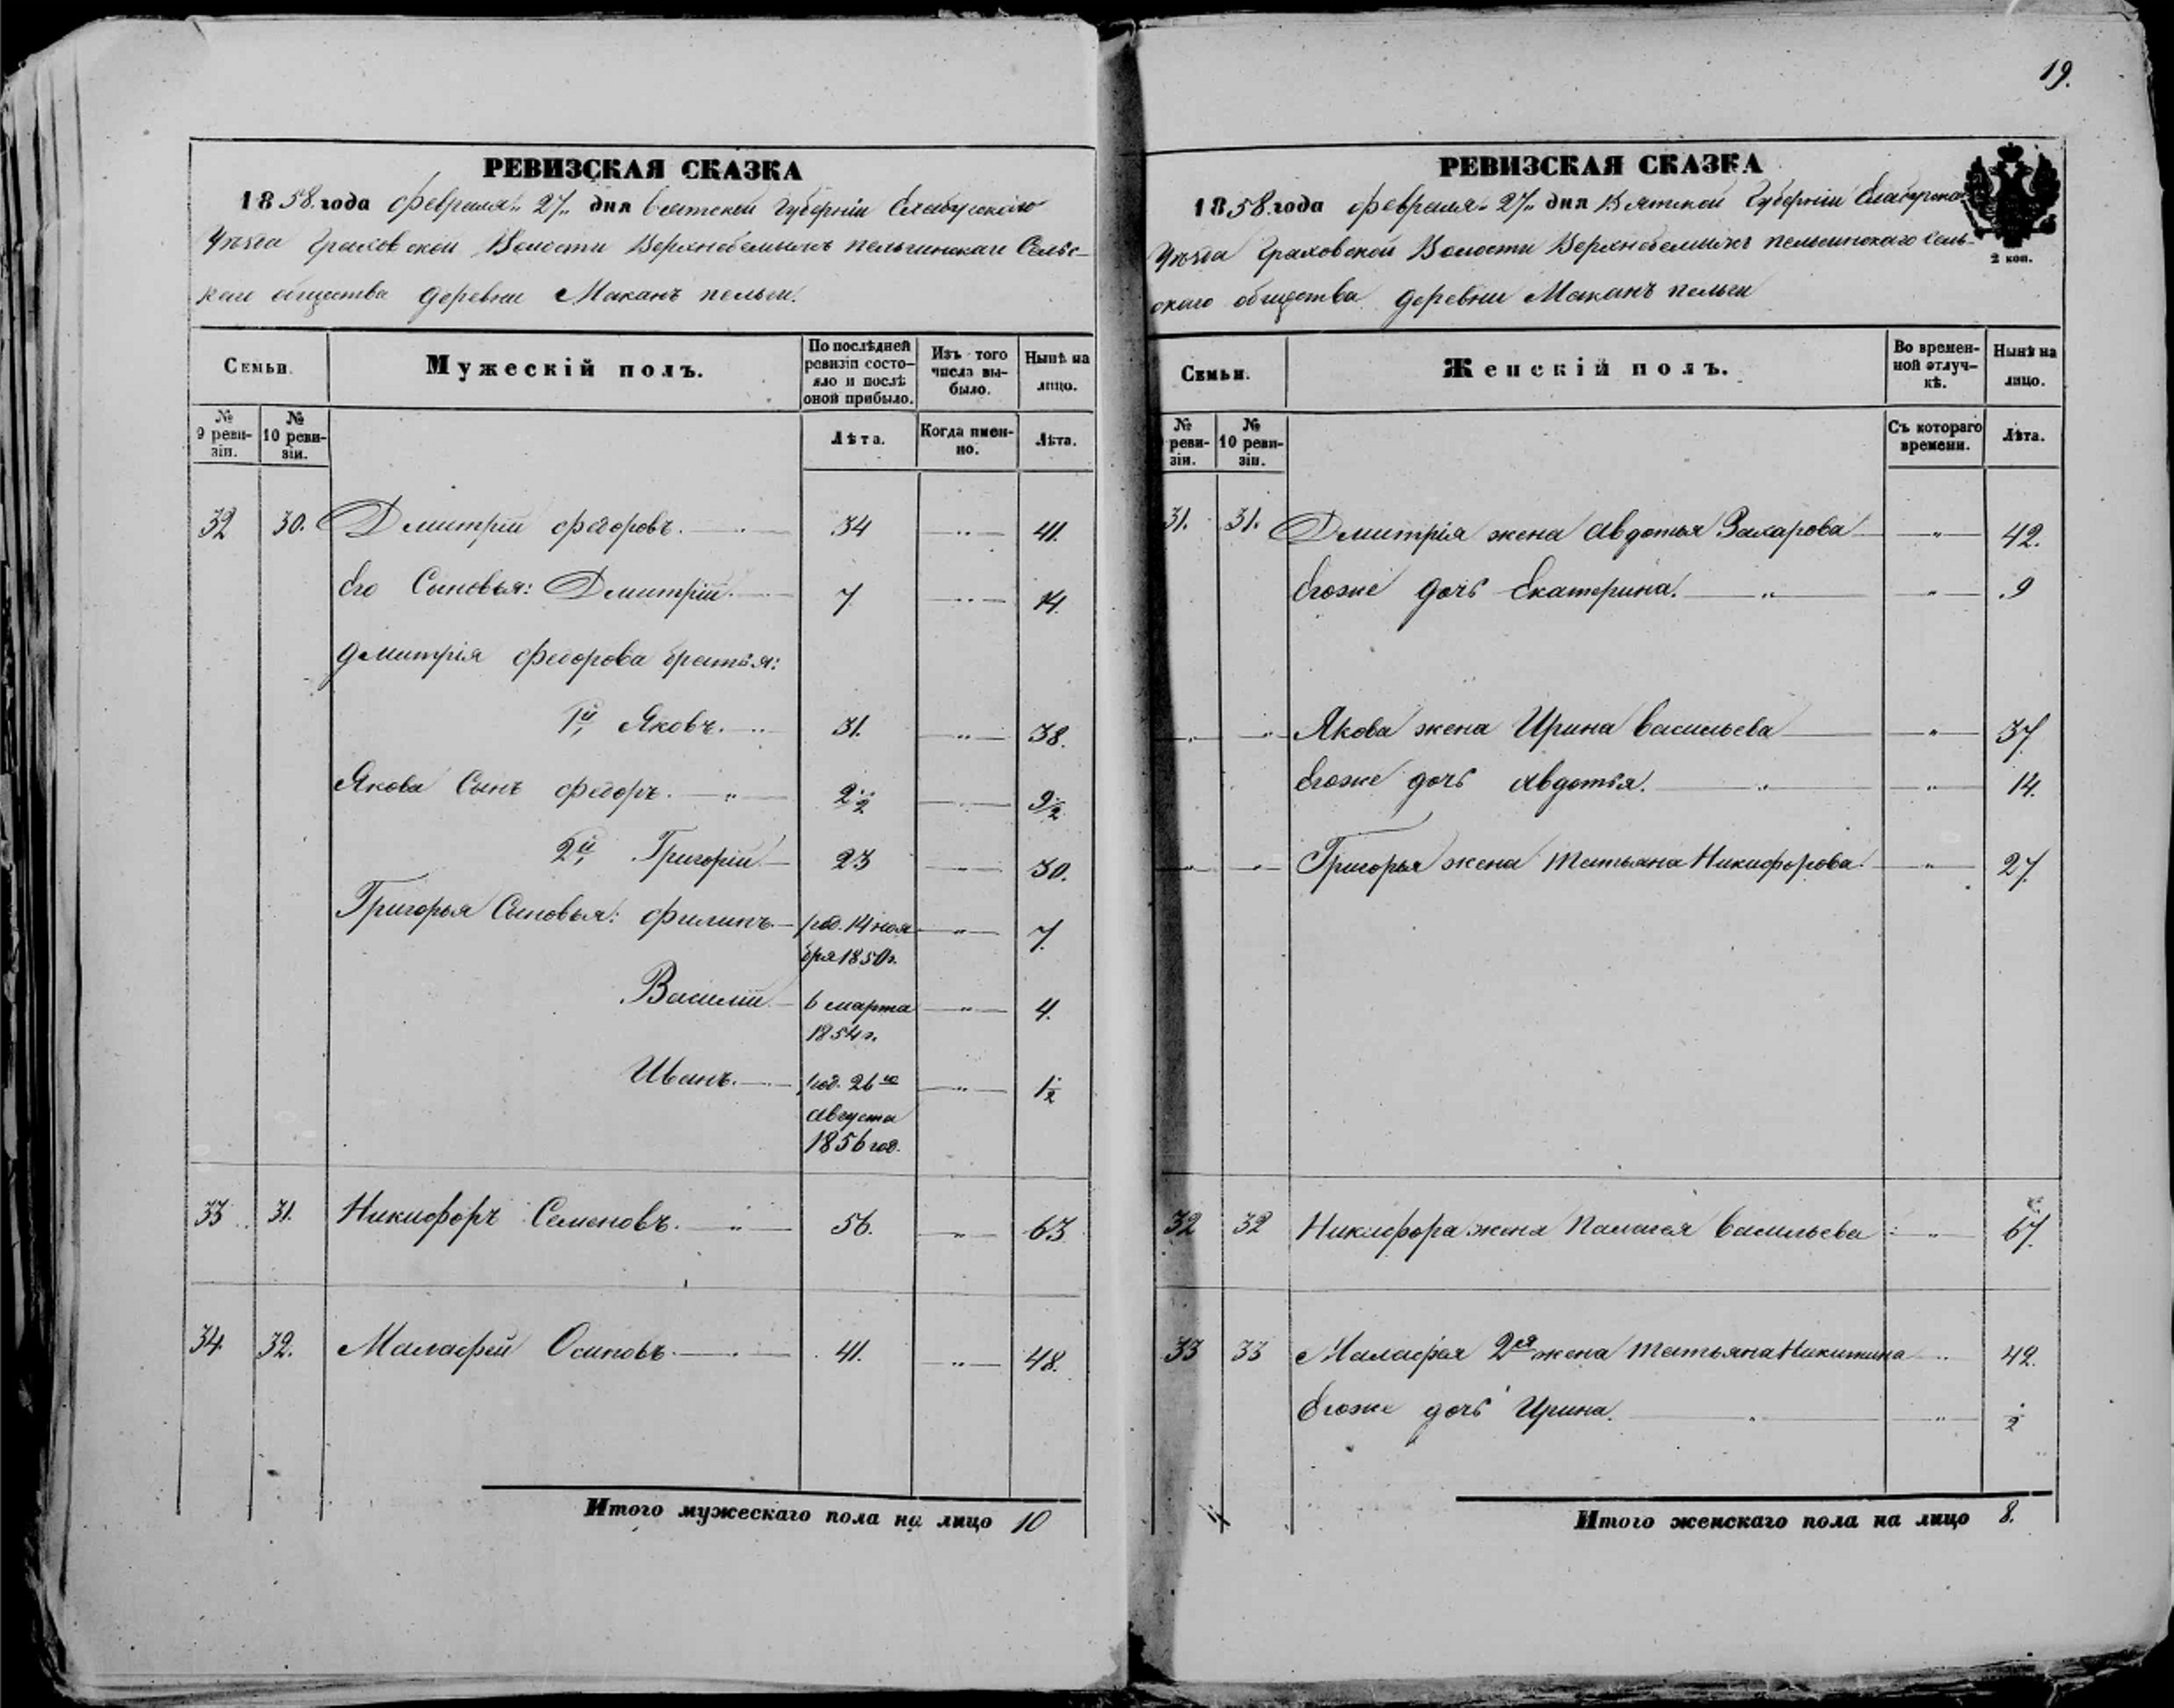 19.
РЕВИЗСКАЯ СКАЗКА
1858. года февраля „ 27 „ дня Вятской Губерніи Елабугского
Уѣзда Граховской Волости Верхнобемышъ пельгинскаго Сельс-
каго общества деревни Маканъ пельги.
Семьи. Мужескій полъ. По послѣдней ревизіи состояло и послѣ оной прибыло. Изъ того числа выбыло. Нынѣ на лицо.
№ 9 ревизіи. № 10 ревизіи. Лѣта. Когда именно. Лѣта.
32 30. Дмитрій Федоровъ. 34 41.
Его Сыновья: Дмитрій. 7 14.
Дмитрія Федорова братья:
1й Яковъ. 31. 38.
Якова Сынъ Федоръ. 2 1/2 9 1/2
2й Григорій 23 30.
Григорья Сыновья: Филипъ род. 14 ноя 7.
бря 1850г.
Василій 6 марта 4.
1854г.
Иванъ. род. 26го 1 1/2
августа
1856 год.
33 31. Никифоръ Семеновъ. 56. 63
34 32. Маласфей Осиповъ. 41. 48.
Итого мужескаго пола на лицо 10
РЕВИЗСКАЯ СКАЗКА
1858. года февраля „ 27 „ дня Вятской Губерніи Елабугска
Уѣзда Граховской Волости Верхнобемышъ пельгинскаго Сель-
скаго общества деревни Маканъ пельги
2 коп.
Семьи. Женскій полъ. Во временной отлучкѣ. Нынѣ на лицо.
№ ревизіи. № 10 ревизіи. Съ котораго времени. Лѣта.
31. 31. Дмитрія жена Авдотья Захарова 42.
Егоже дочь Екатерина. 9
Якова жена Ирина Васильева 37
Егоже дочь Авдотья. 14.
Григорья жена Татьяна Никифорова 27
32 32 Никифора жена Палагея Васильева 67.
33 33 Маласфея 2я жена Татьяна Никитина 42.
Егоже дочь Ирина. 1/2
Итого женскаго пола на лицо 8.